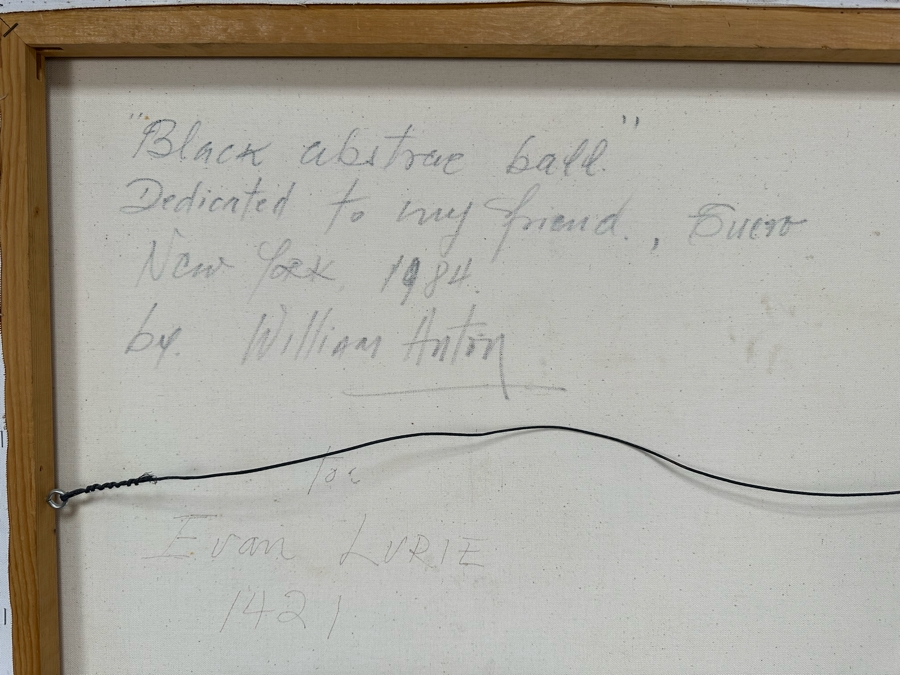 "Black abstrac ball."
Dedicated to my friend.,
New York, 1984.
by. William Anton
Evan LURIE
1421